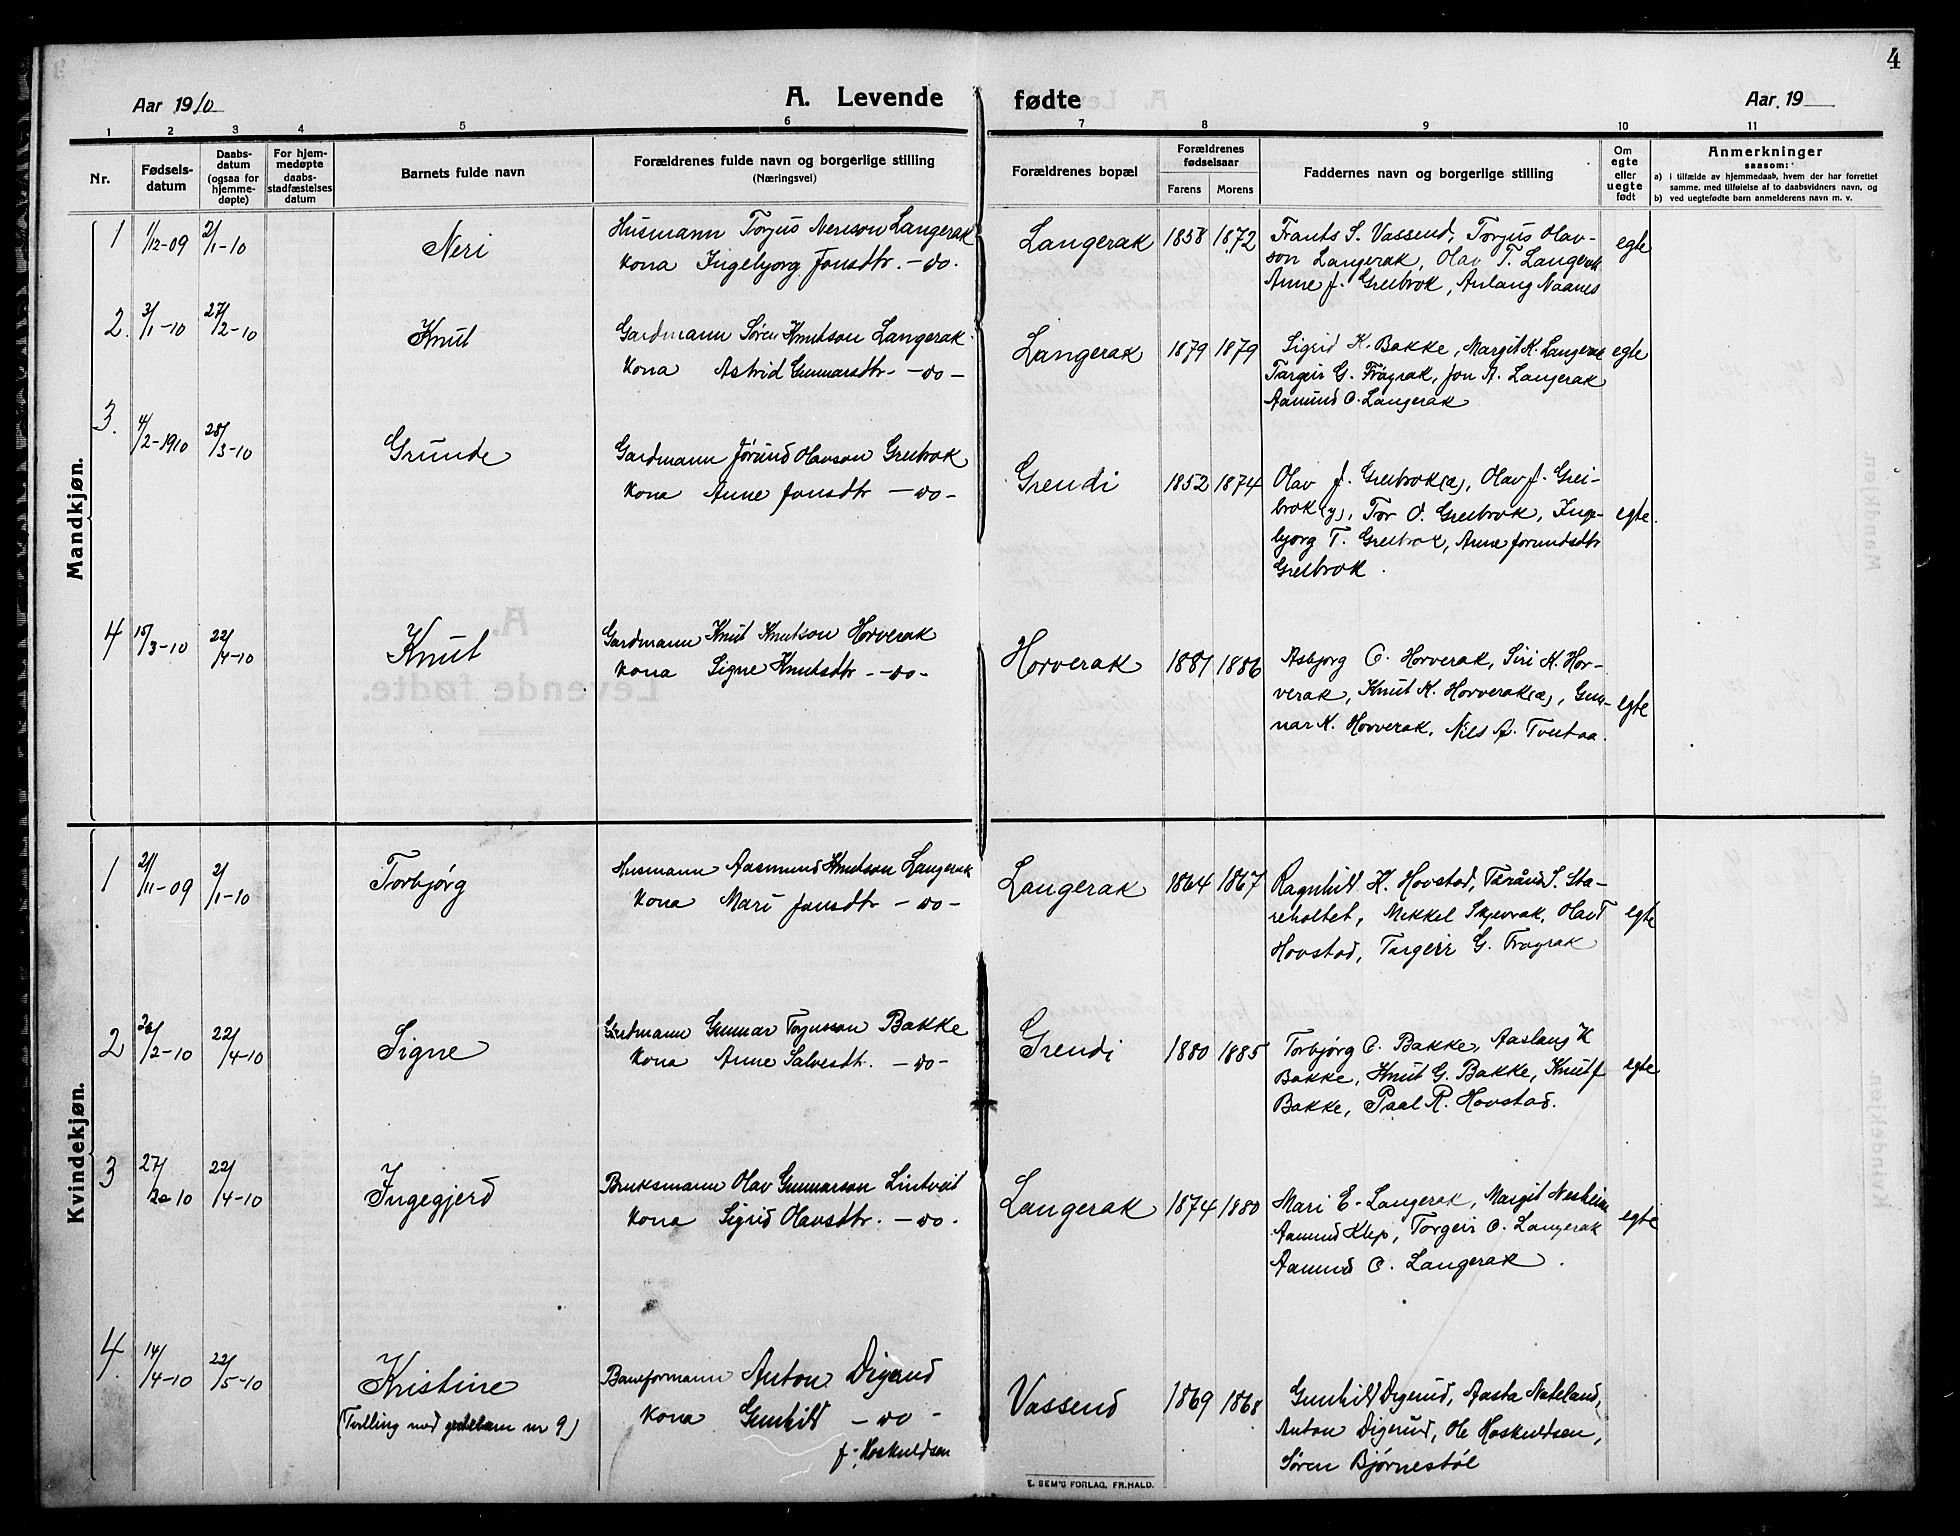 4
Aar 1910
A. Levende fødte
Aar 19
1 2 3 4 5 6 7 8 9 10 11
Nr.
Fødsels-
datum
Daabs-
datum
(ogsaa for
hjemme-
døpte)
For hjem-
medøpte
daabs-
stadfæstelses
datum
Barnets fulde navn
Forældrenes fulde navn og borgerlige stilling
(Næringsvei)
Forældrenes bopæl
Forældrenes
fødselsaar
Farens Morens
Faddernes navn og borgerlige stilling
Om
egte
eller
uegte
født
Anmerkninger
saasom:
a) i tilfælde av hjemmedaab, hvem der har forrettet
samme, med tilføielse af to daabsvidners navn, og
b) ved uegtefødte barn anmelderens navn m. v.
Mandkjøn.
1 1/12-09 2/1-10 Neri
Husmann Torjus Nerison Langerak
kona Ingebjorg Jonsdtr. -do.
Langerak 1858 1872
Frants S. Vassend, Torjus Olav-
son Langerak, Olav T. Langerak
Anne J. Greibrok, Anlaug Naanes
egte
2. 3/1-10 27/2-10 Knut
Gardmann Søren Knutson Langerak
kona Astrid Gunnarsdtr. -do-
Langerak 1879 1879
Sigrid K. Bakke, Margit K. Langerak
Targeir G. Frøyrak, Jon A. Langerak
Aamund O. Langerak
egte
3. 4/2-1910 28/3-10 Grunde
Gardmann Jórund Olavson Greibrok
kona Anne Jonsdtr -do-
Grendi 1852 1874
Olav J. Greibrok(e), Olav J. Grei-
brok(y), Tor O. Greibrok, Inge-
bjorg T. Greibrok, Anne Jorundsdtr
Greibrok.
egte.
4 15/3-10 22/4-10 Knut
Gardmann Knut Knutson Horverak
kona Signe Knutsdtr -do-
Horverak 1881 1886
Asbjorg O. Horverak, Siri K. Hor-
verak, Knut K. Horverak(e), Gun-
nar K. Horverak, Nils A. Tveitaa.
egte
Kvindekjøn.
1 21/11-09 2/1-10 Torbjørg
Husmann Aasmund Knutson Langerak
kona Mari Jonsdtr -do-
Langerak 1864 1867
Ragnhild K. Hovstad, Taraud S. Sta-
reholtet, Mikkel Skjevrak, Olav T
Hovstad, Targeir G. Frøyrak
egte
2 26/2-10 22/4-10 Signe
Gardmann Gunnar Torjusson Bakke
kona Anne Salvesdtr. -do-
Grendi 1880 1885
Torbjørg O. Bakke, Aaslaug K
Bakke, Knut G. Bakke, Knut J
Bakke, Paal R. Hovstad.
egte
3 27/2-10 22/4-10 Ingegjerd
Bruksmann Olav Gunnarson Lintveit
kona Sigrid Olavsdtr. -do.
Langerak 1874 1880
Mari E. Langerak, Margit Nesheim
Aamund Klep, Torgeir O. Langerak
Aamund O. Langerak.
egte
4. 14/4-10 22/5-10 Kristine
(Tvilling med gutebarn nr 9)
Baneformann Anton Digerud
kona Gunhild -do-
f. Hoskuldsen
Vassend 1869 1868
Gunhild Digerud, Aasta Nateland,
Anton Digerud, Ole Hoskuldsen,
Søren Bjørnestøl
E. SEM'S FORLAG, FR.HALD.